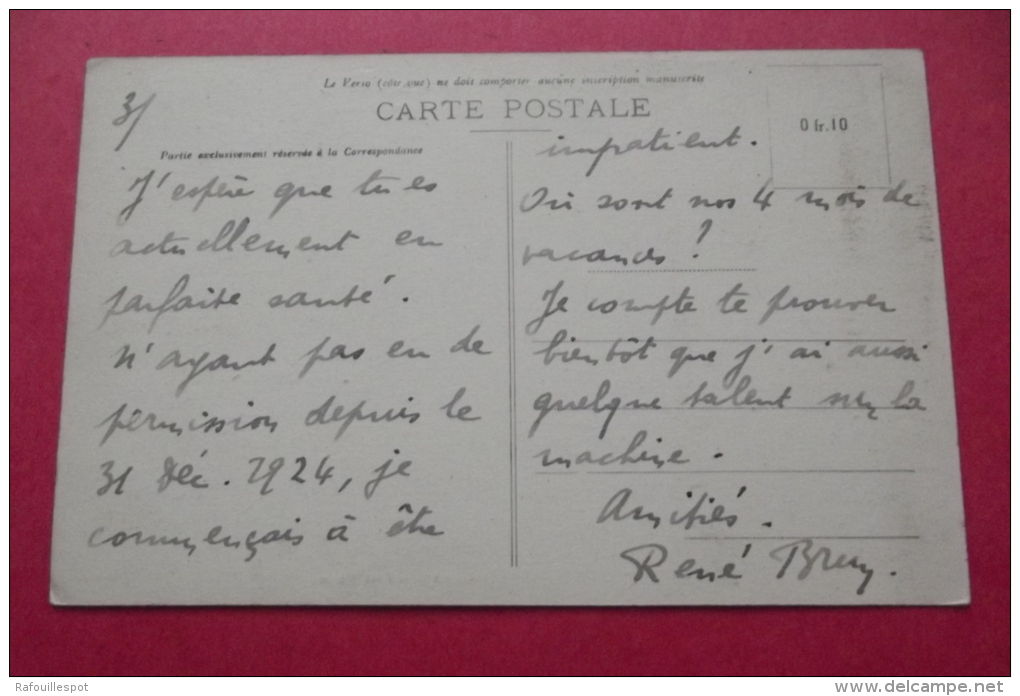 Le Verso (côté vue) ne doit comporter aucune inscription manuscrite
CARTE POSTALE
3/
0 fr. 10
Partie exclusivement réservée à la Correspondance
J'espère que tu es
actuellement en
parfaite santé.
N'ayant pas eu de
permission depuis le
31 Déc. 1924, je
commençais à être
impatient.
Où sont nos 4 mois de
vacances ?
Je compte te prouver
bientôt que j'ai aussi
quelque talent sur la
machine.
Amitiés.
René
Rafouillespot
delcampe.net